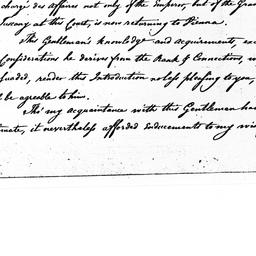 chargé des affaires not only of the Emperor, but of the Gran
Tuscany at this Court, is now returning to Vienna.
This Gentleman's knowledge and acquirements, exc
Considerations he derives from the Rank & Connections, w
luded, render the Introduction no less pleasing to you,
l be agreable to him.
Tho' my acquaintance with this Gentleman ha
mate, it nevertheless afforded inducements to my wis